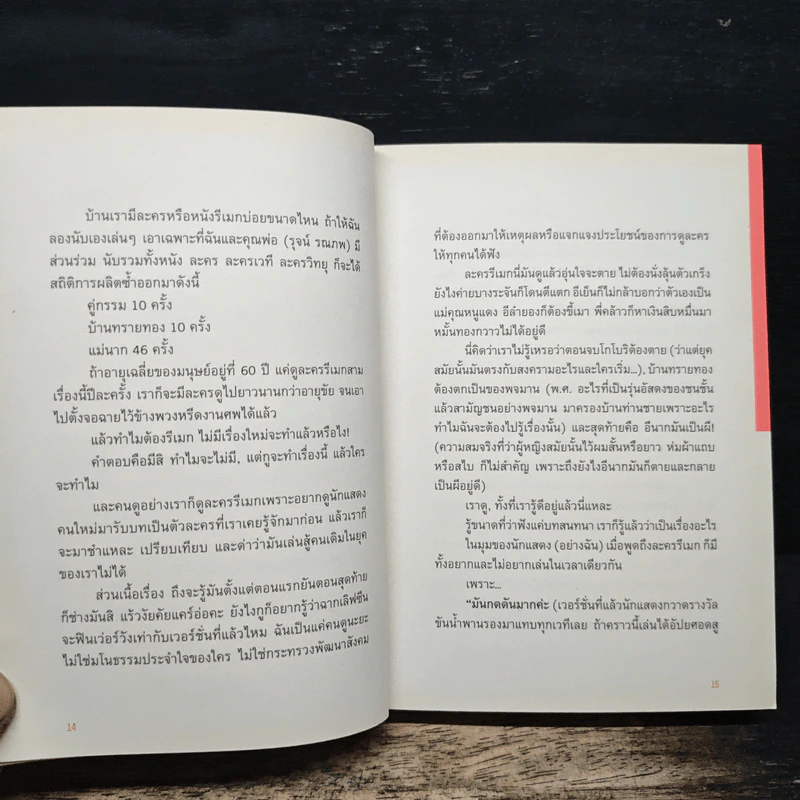 บ้านเรามีละครหรือหนังรีเมกบ่อยขนาดไหน ถ้าให้ฉัน
ลองนับเองเล่นๆ เอาเฉพาะที่ฉันและคุณพ่อ (รุจน์ รณภพ) มี
ส่วนร่วม นับรวมทั้งหนัง ละคร ละครเวที ละครวิทยุ ก็จะได้
สถิติการผลิตซ้ำออกมาดังนี้
คู่กรรม 10 ครั้ง
บ้านทรายทอง 10 ครั้ง
แม่นาก 46 ครั้ง
ถ้าอายุเฉลี่ยของมนุษย์อยู่ที่ 60 ปี แค่ดูละครรีเมกสาม
เรื่องนี้ปีละครั้ง เราก็จะมีละครดูไปยาวนานกว่าอายุขัย จนเอา
ไปตั้งจอฉายไว้ข้างพวงหรีดงานศพได้แล้ว
แล้วทำไมต้องรีเมก ไม่มีเรื่องใหม่จะทำแล้วหรือไง!
คำตอบคือมีสิ ทำไมจะไม่มี, แต่กูจะทำเรื่องนี้ แล้วใคร
จะทำไม
และคนดูอย่างเราก็ดูละครรีเมกเพราะอยากดูนักแสดง
คนใหม่มารับบทเป็นตัวละครที่เราเคยรู้จักมาก่อน แล้วเราก็
จะมาชำแหละ เปรียบเทียบ และด่าว่ามันเล่นสู้คนเดิมในยุค
ของเราไม่ได้
ส่วนเนื้อเรื่อง ถึงจะรู้มันตั้งแต่ตอนแรกยันตอนสุดท้าย
ก็ช่างมันสิ แร้วงัยคัยแคร์อ่อคะ ยังไงกูก็อยากรู้ว่าฉากเลิฟซีน
จะฟินเว่อร์วังเท่ากับเวอร์ชั่นที่แล้วไหม ฉันเป็นแค่คนดูนะยะ
ไม่ใช่มโนธรรมประจำใจของใคร ไม่ใช่กระทรวงพัฒนาสังคม
14
ที่ต้องออกมาให้เหตุผลหรือแจกแจงประโยชน์ของการดูละคร
ให้ทุกคนได้ฟัง
ละครรีเมกนี่มันดูแล้วอุ่นใจจะตาย ไม่ต้องนั่งลุ้นตัวเกร็ง
ยังไงค่ายบางระจันก็โดนตีแตก อีเย็นก็ไม่กล้าบอกว่าตัวเองเป็น
แม่คุณหนูแดง อีลำยองก็ต้องขี้เมา พี่คล้าวก็หาเงินสิบหมื่นมา
หมั้นทองกวาวไม่ได้อยู่ดี
นี่คิดว่าเราไม่รู้เหรอว่าตอนจบโกโบริต้องตาย (ว่าแต่ยุค
สมัยนั้นมันตรงกับสงครามอะไรและใครเริ่ม...), บ้านทรายทอง
ต้องตกเป็นของพจมาน (พ.ศ. อะไรที่เป็นรุ่นอัสดงของชนชั้น
แล้วสามัญชนอย่างพจมาน มาครองบ้านท่านชายเพราะอะไร
ทำไมฉันจะต้องไปรู้เรื่องนั้น) และสุดท้ายคือ อีนากมันเป็นผี!
(ความสมจริงที่ว่าผู้หญิงสมัยนั้นไว้ผมสั้นหรือยาว ห่มผ้าแถบ
หรือสไบ ก็ไม่สำคัญ เพราะถึงยังไงอีนากมันก็ตายและกลาย
เป็นผีอยู่ดี)
เราดู, ทั้งที่เรารู้ดีอยู่แล้วนี่แหละ
รู้ขนาดที่ว่าฟังแค่บทสนทนา เราก็รู้แล้วว่าเป็นเรื่องอะไร
ในมุมของนักแสดง (อย่างฉัน) เมื่อพูดถึงละครรีเมก ก็มี
ทั้งอยากและไม่อยากเล่นในเวลาเดียวกัน
เพราะ...
“มันกดดันมากค่ะ (เวอร์ชั่นที่แล้วนักแสดงกวาดรางวัล
ขันน้ำพานรองมาแทบทุกเวทีเลย ถ้าคราวนี้เล่นได้อัปยศอดสู
15